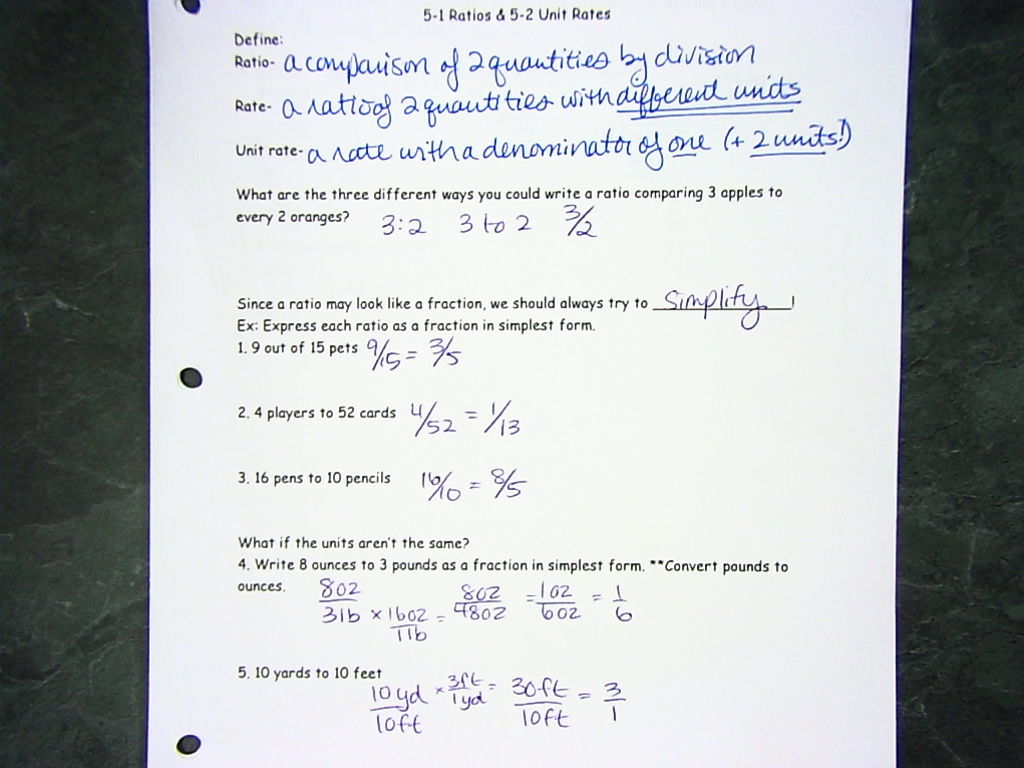 5-1 Ratios & 5-2 Unit Rates
Define:
Ratio- a comparison of 2 quantities by division
Rate- a ratio of 2 quantities with different units
Unit rate- a rate with a denominator of one (+ 2 units!)
What are the three different ways you could write a ratio comparing 3 apples to
every 2 oranges? 3:2 3 to 2 3/2
Since a ratio may look like a fraction, we should always try to simplify!
Ex: Express each ratio as a fraction in simplest form.
1. 9 out of 15 pets 9/15 = 3/5
2. 4 players to 52 cards 4/52 = 1/13
3. 16 pens to 10 pencils 16/10 = 8/5
What if the units aren't the same?
4. Write 8 ounces to 3 pounds as a fraction in simplest form. **Convert pounds to
ounces. 8oz/3lb × 16oz/1lb = 8oz/48oz = 1oz/6oz = 1/6
5. 10 yards to 10 feet
10yd/10ft × 3ft/1yd = 30ft/10ft = 3/1